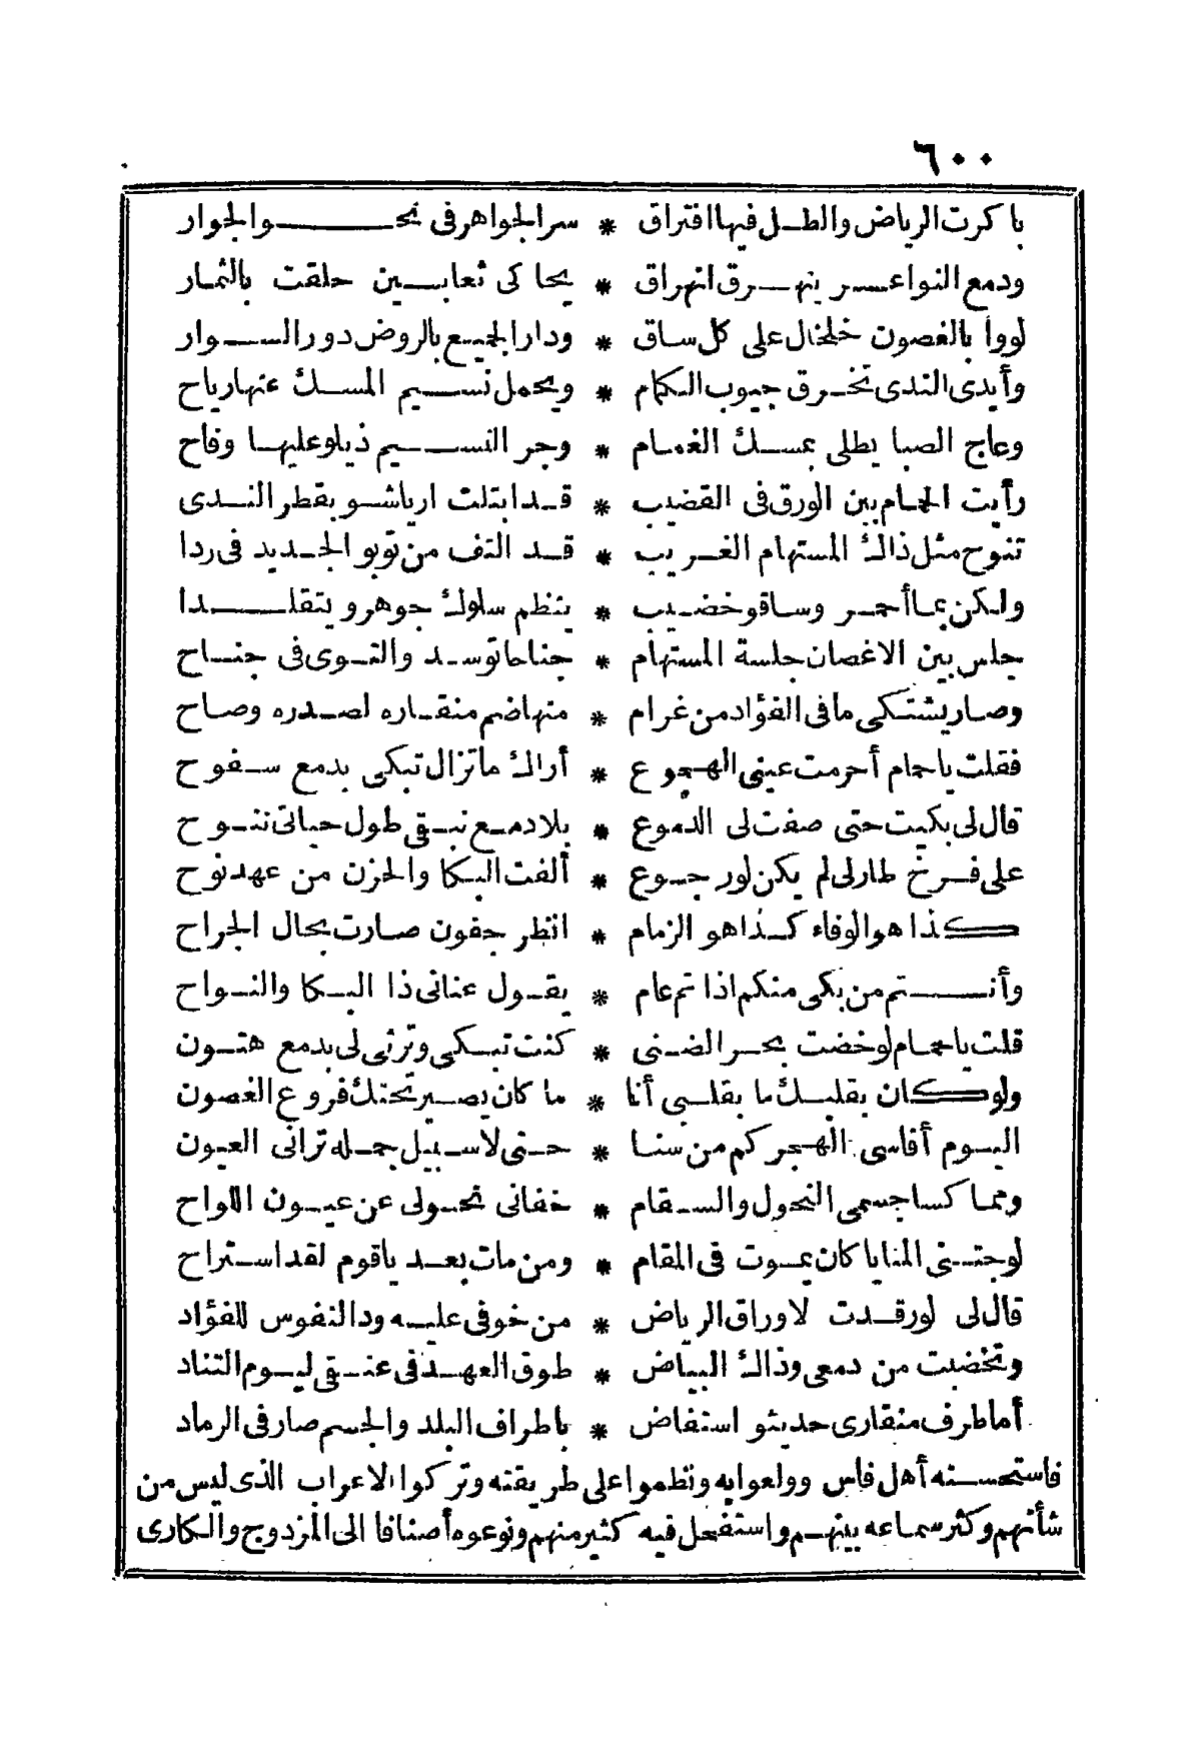 ٦٠٠
باكرت الرياض والطل فيها افتراق * سر الجواهر فى نحو الجوار
ودمع النواعر ينهرق انهراق * يحاكى ثعابين حلقت بالثمار
لووا بالغصون خلخال على كل ساق * ودار الجميع بالروض دور السوار
وأيدى الندى تخرق جيوب الكمام * ويحمل نسيم المسك عنها رياح
وعاج الصبا يطلى بمسك الغمام * وجر النسيم ذيلو عليها وفاح
رأيت الحمام بين الورق فى القضيب * قد ابتلت ارياشو بقطر الندى
تنوح مثل ذاك المستهام الغريب * قد التف من توبو الجديد فى ردا
ولكن بما أحمر وساقو خضيب * ينظم سلوك جوهر ويتقلدا
جلس بين الاغصان جلسة المستهام * جناحا توسد والتوى فى جناح
وصار يشتكى ما فى الفؤاد من غرام * منها ضم منقاره لصدره وصاح
فقلت يا حمام أحرمت عينى الهجوع * أراك ما تزال تبكى بدمع سفوح
قال لى بكيت حتى صفت لى الدموع * بلا دمع نبقى طول حياتى ننوح
على فرخ طار لى لم يكن لو رجوع * ألفت البكا والحزن من عهد نوح
كذا هو الوفاء كذا هو الزمام * انظر جفون صارت بحال الجراح
وأنتم من بكى منكم اذا تم عام * يقول عنانى ذا البكا والنواح
قلت يا حمام لو خضت بحر الضنى * كنت تبكى وترثى لى بدمع هتون
ولو كان بقلبك ما بقلبى أنا * ما كان يصير تحتك فروع الغصون
اليوم أقاسى الهجر كم من سنا * حتى لا سبيل جمله ترانى العيون
ومما كسا جسمى النحول والسقام * خفانى نحولى عن عيون اللواح
لو جتنى المنايا كان يموت فى المقام * ومن مات بعد ياقوم لقد استراح
قال لى لو رقدت لاوراق الرياض * من خوفى عليه ودا النفوس للفؤاد
وتخضبت من دمعى وذاك البياض * طوق العهد فى عنقى ليوم التناد
أما طرف منقارى حديثو استفاض * باطراف البلد والجسم صار فى الرماد
فاستحسنه أهل فاس وولعوا به ونظموا على طريقته وتركوا الاعراب الذى ليس من
شأنهم وكثر سماعه بينهم واستفحل فيه كثير منهم ونوعوه أصنافا الى المزدوج والكارى